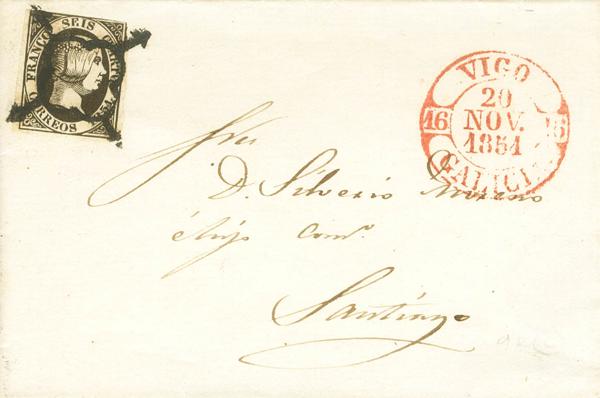 FRANCO SEIS CUARTOS
CORREOS 1851
VIGO
20
NOV.
1851
16 16
GALICIA
Sres
D. Silverio Moreno
é hijo Comº.
Santiago